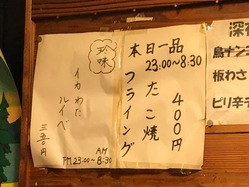 本日一品
23:00~8:30
400円
たこ焼
フライング
珍味
イカわた
ルイベ
三五〇円
AM
PM23:00~8:30
深夜
鳥ナンコ
板わさ
ピリ辛